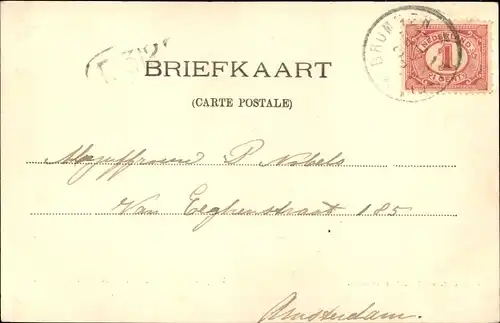 BRUMMEN
NEDERLAND
1
CENT
BRIEFKAART
(CARTE POSTALE)
Mejuffrouw P Nobels
Van Eeghenstraat 185
Amsterdam.